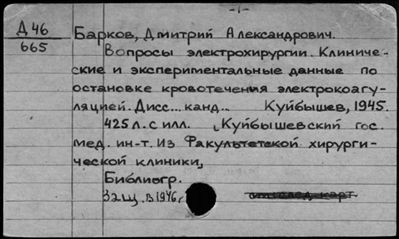 -1-
Д 46
665
Барков, Дмитрий Александрович.
Вопросы электрохирургии. Клиниче-
ские и экспериментальные данные по
остановке кровотечения электрокоагу-
ляцией. Дисс... канд... Куйбышев, 1945.
425 л. с илл. (Куйбышевский гос.
мед. ин-т. Из Факультетской хирурги-
ческой клиники)
Библиогр.
Защ. в 1946 г.